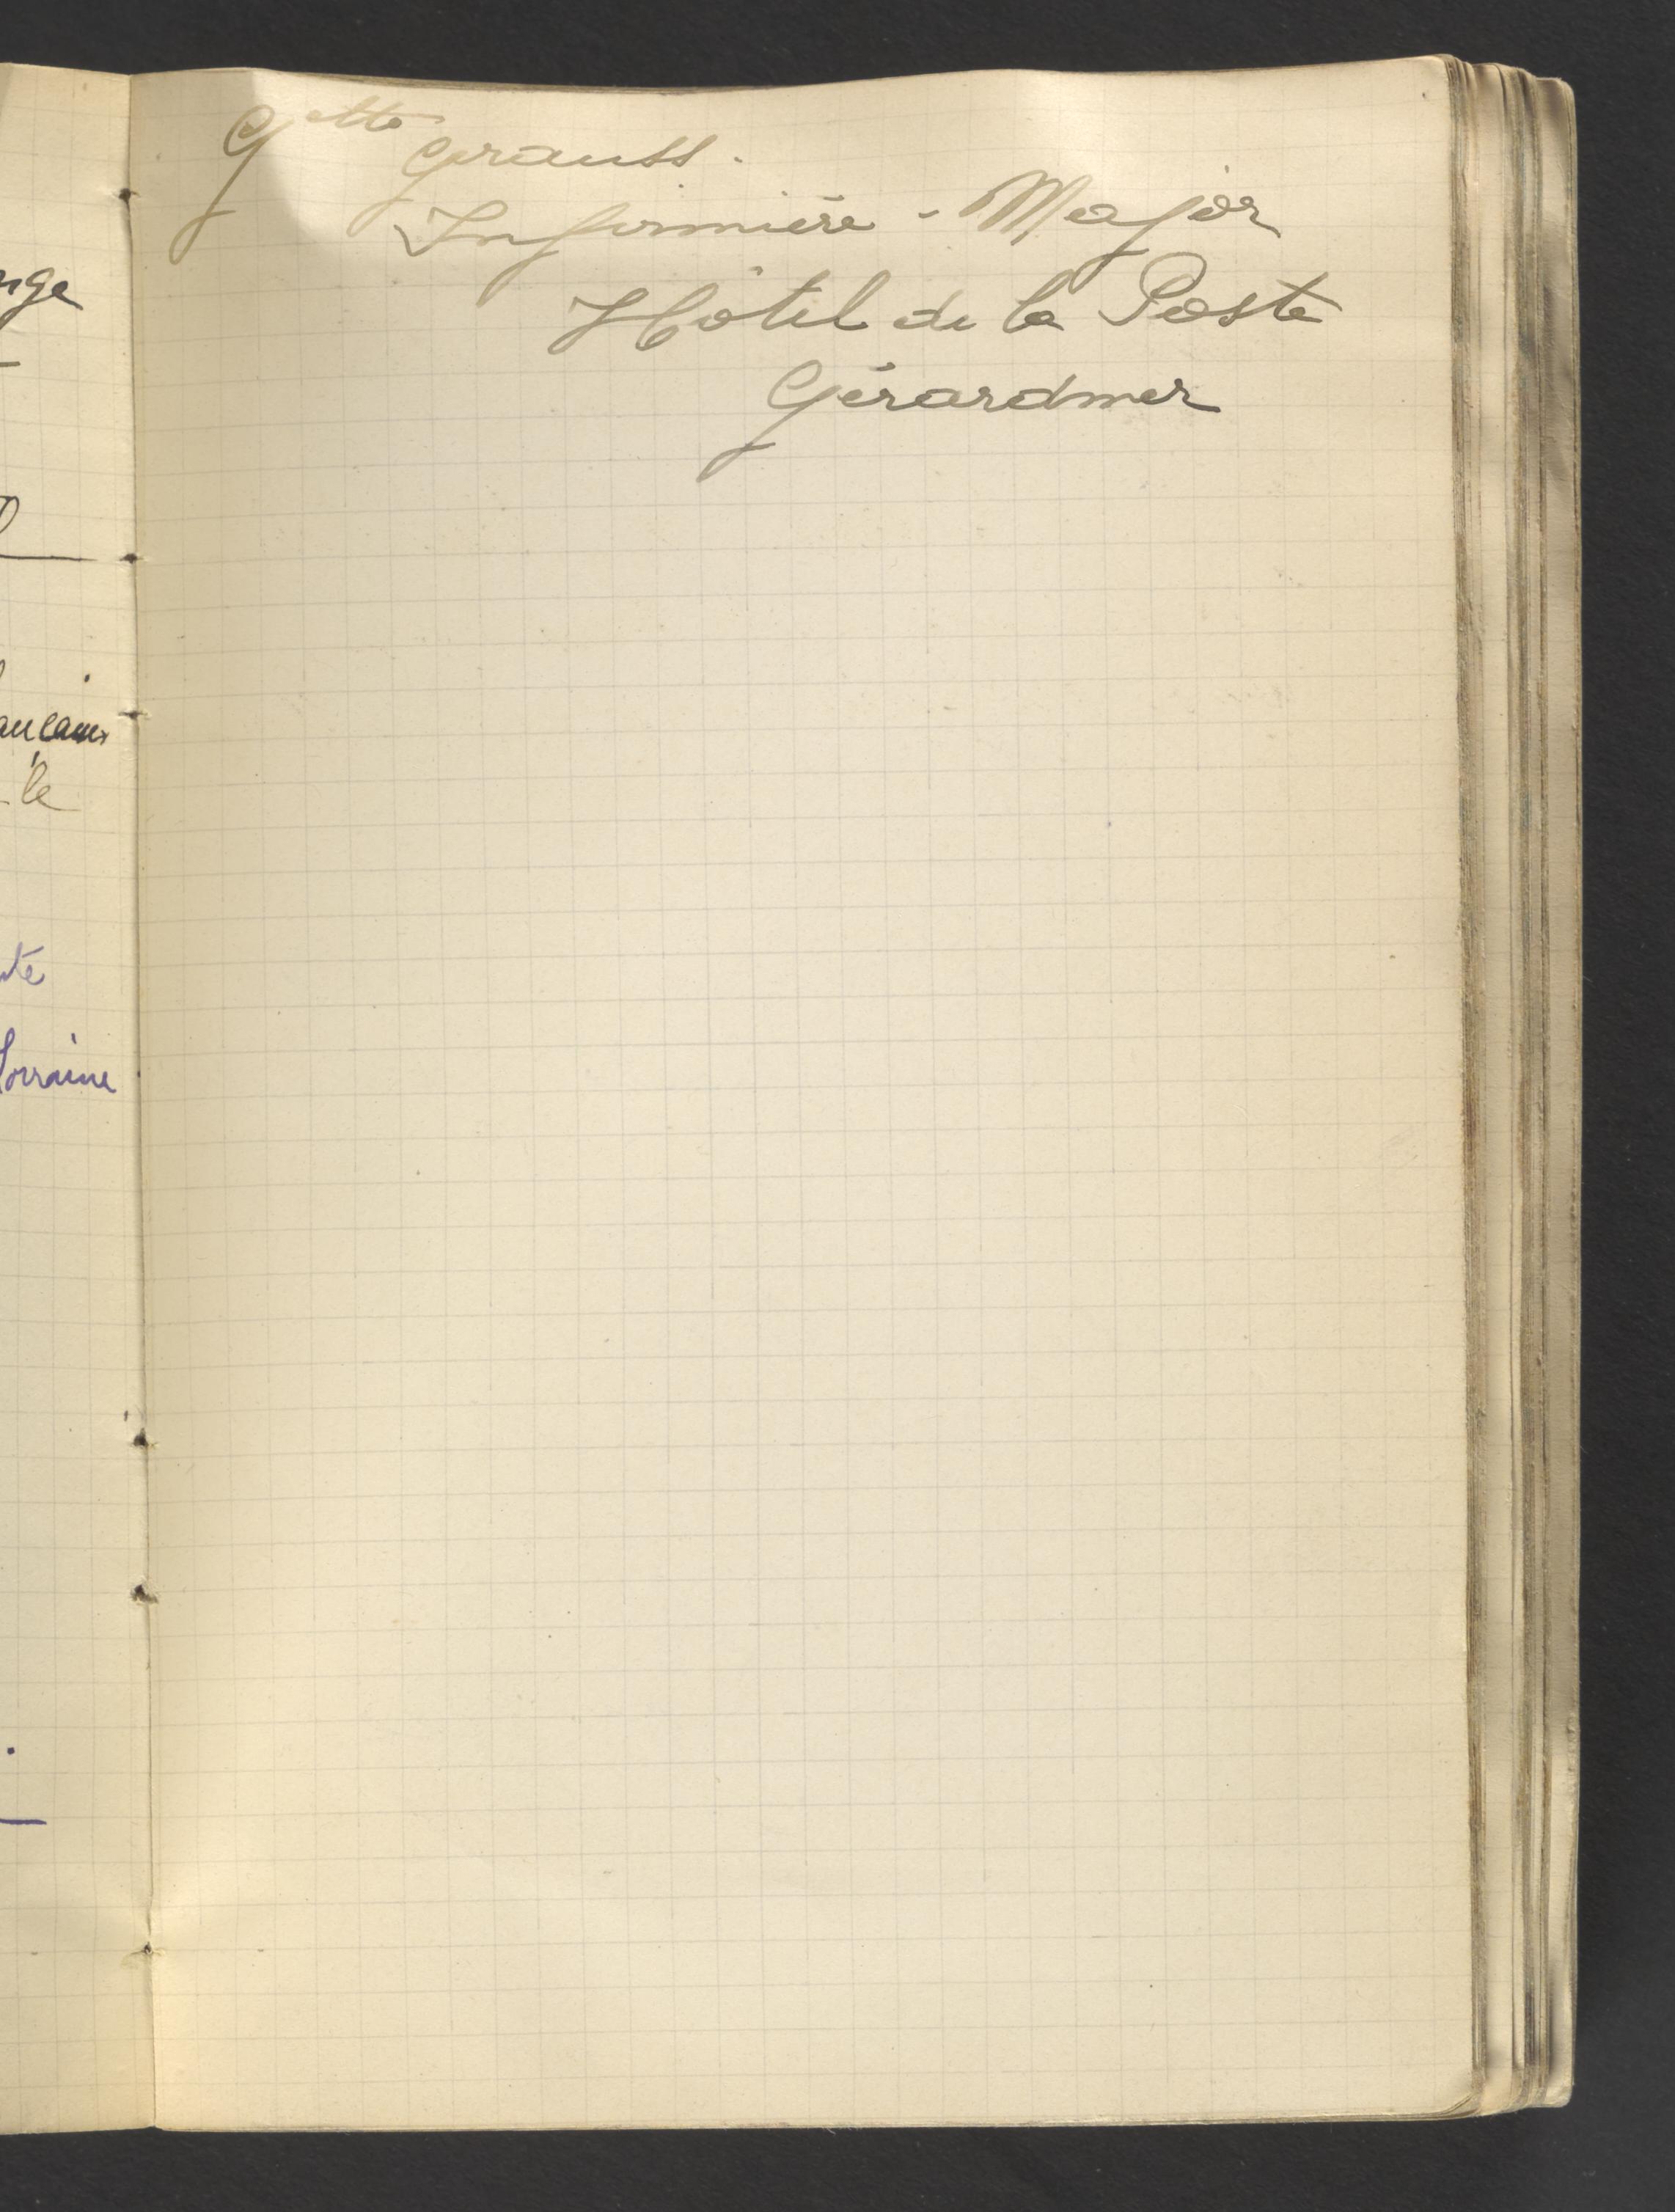 nge
aucaur
le
té
Lorraine
Gette Grauss.
Infirmière - Major
Hôtel de la Poste
Gérardmer